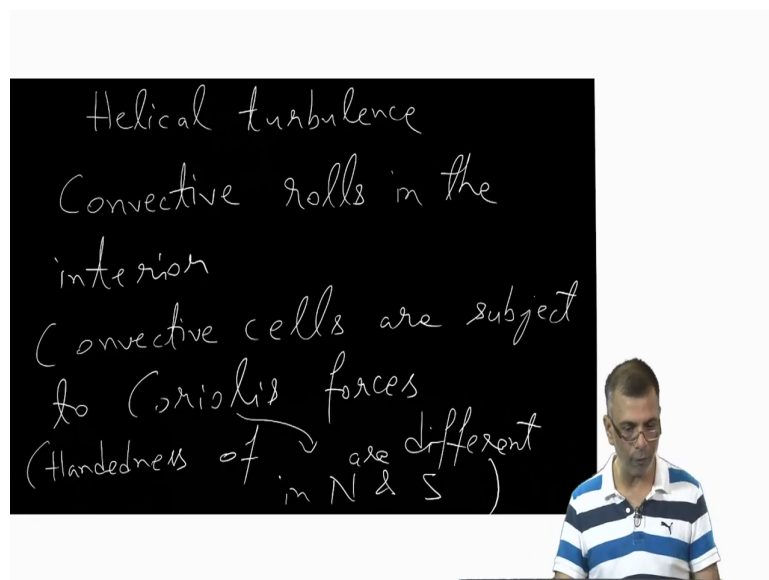 Helical turbulence
Convective rolls in the
interior
Convective cells are subject
to Coriolis forces
(Handedness of are different
in N & S )